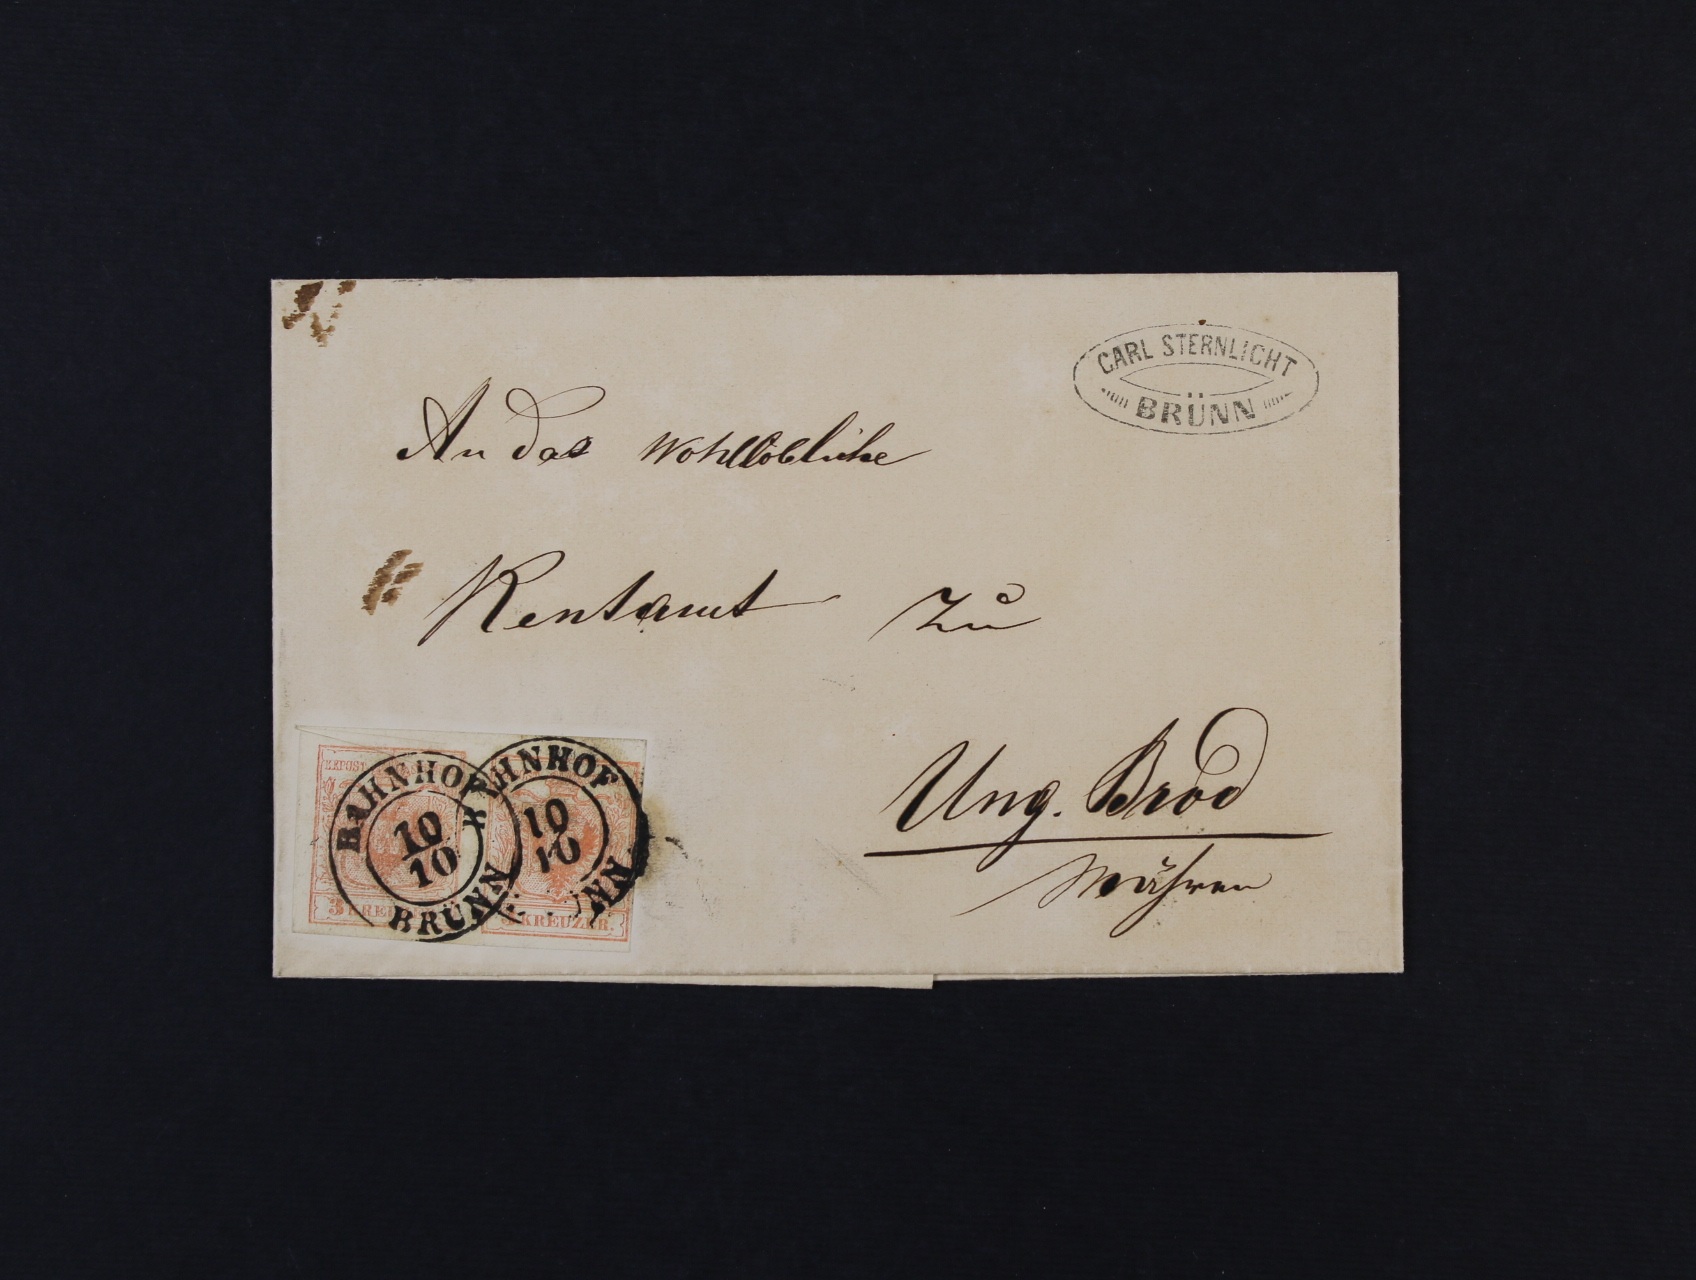 CARL STERNLICHT
BRÜNN
An das Wohllöbliche
Rentamt zu
Ung. Brod
Mähren
BAHNHOF
10
10
BRÜNN
BAHNHOF
10
10
3 KREUZER.